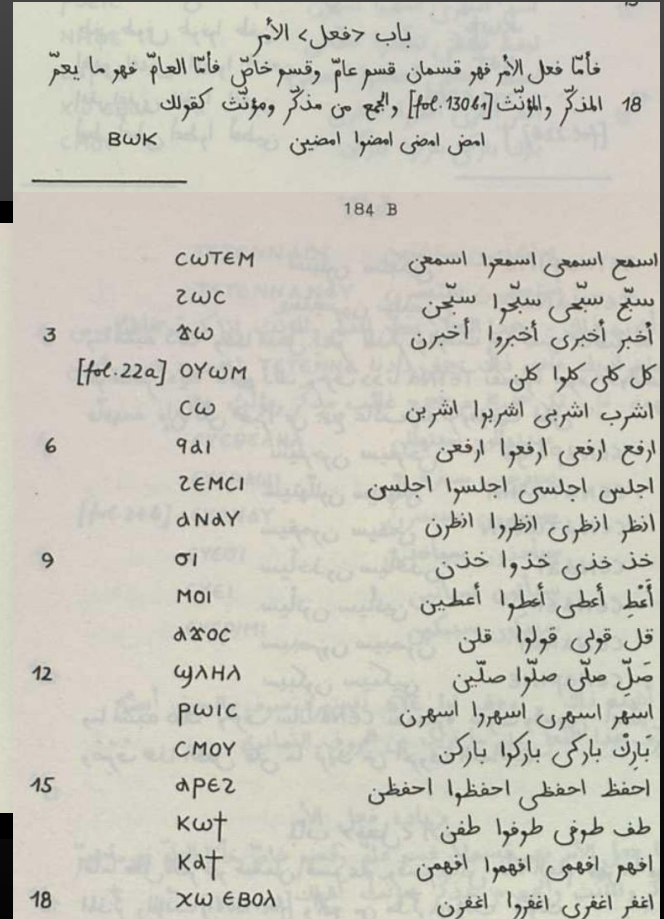 باب <فعل> الأمر
فأمّا فعل الأمر فهو قسمان قسم عامّ وقسم خاصّ فأمّا العامّ فهو ما يعمّ
18 المذكّر والمؤنّث [fol. 130b1] والجمع من مذكّر ومؤنّث كقولك
امض امضى امضوا امضين ⲃⲱⲕ
184 B
ⲥⲱⲧⲉⲙ اسمع اسمعى اسمعوا اسمعن
ϩⲱⲥ سبّح سبّحى سبّحوا سبّحن
3 ϫⲱ أخبر أخبرى أخبروا أخبرن
[fol. 22a] ⲟⲩⲱⲙ كل كلى كلوا كلن
ⲥⲱ اشرب اشربى اشربوا اشربن
6 ϥⲁⲓ ارفع ارفعى ارفعوا ارفعن
ϩⲉⲙⲥⲓ اجلس اجلسى اجلسوا اجلسى
ⲁⲛⲁⲩ انظر انظرى انظروا انظرن
9 ϭⲓ خذ خذى خذوا خذن
ⲙⲟⲓ أَعْطِ أعطى أعطِوا أعطين
ⲁϫⲟⲥ قل قولى قولوا قلن
12 ϣⲗⲏⲗ صَلِّ صلّى صلّوا صلّين
ⲣⲱⲓⲥ اسهر اسهرى اسهروا اسهرن
ⲥⲙⲟⲩ بَارِكْ باركى باركوا باركن
15 ⲁⲣⲉϩ احفظ احفظى احفظوا احفظن
ⲕⲱϯ طف طوفى طوفوا طفن
ⲕⲁϯ افهم افهمى افهموا افهمن
18 ⲭⲱ ⲉⲃⲟⲗ اغفر اغفرى اغفروا اغفرن